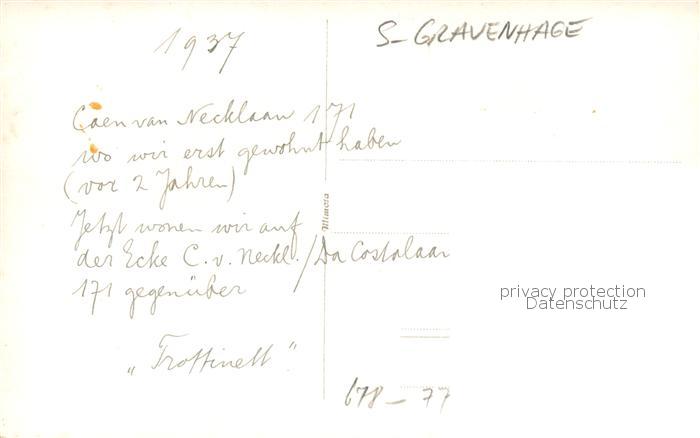 1937
S-GRAVENHAGE
Caen van Necklaan 171
wo wir erst gewohnt haben
(vor 2 Jahren)
Jetzt wonen wir auf
der Ecke C. v. Neckl./Da Costalaan
171 gegenüber
„Trottinett“
Mimosa
privacy protection
Datenschutz
678-77